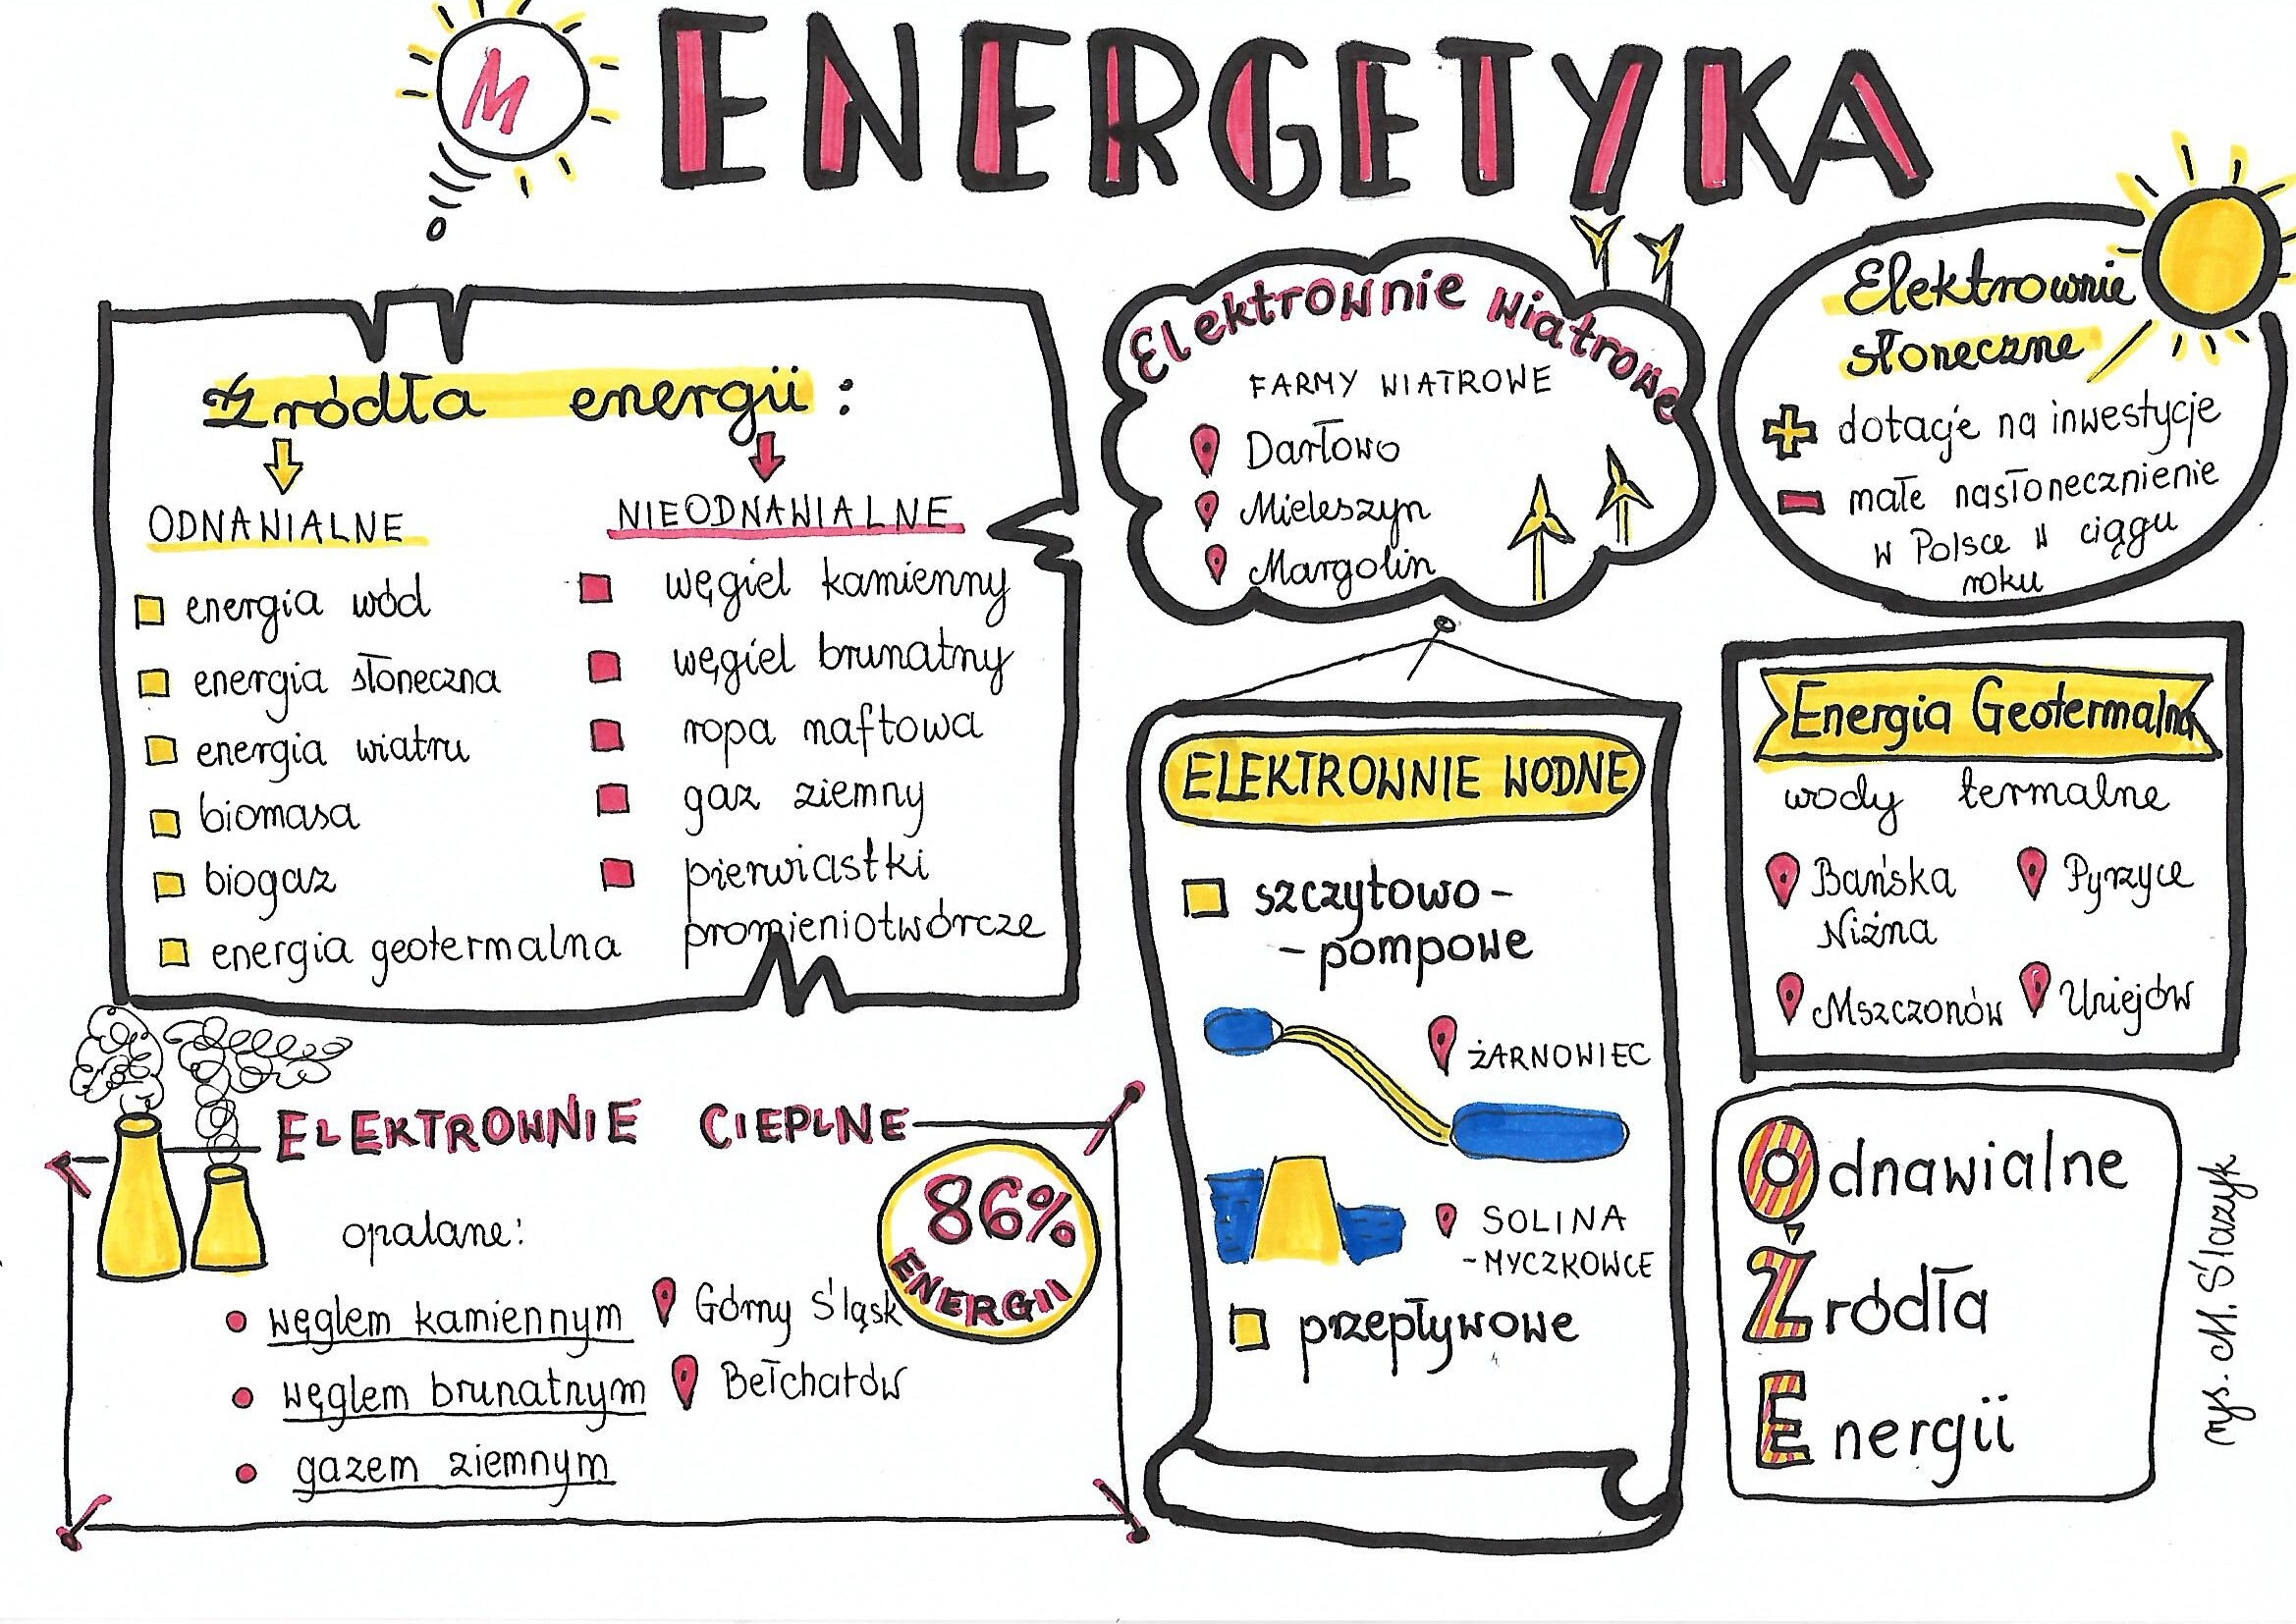 M
ENERGETYKA
Źródła energii:
ODNAWIALNE
energia wód
energia słoneczna
energia wiatru
biomasa
biogaz
energia geotermalna
NIEODNAWIALNE
węgiel kamienny
węgiel brunatny
ropa naftowa
gaz ziemny
pierwiastki
promieniotwórcze
Elektrownie wiatrowe
FARMY WIATROWE
Darłowo
Mieleszyn
Margolin
Elektrownie
słoneczne
+ dotacje na inwestycje
- małe nasłonecznienie
w Polsce w ciągu
roku
ELEKTROWNIE WODNE
szczytowo-
-pompowe
ŻARNOWIEC
SOLINA
-MYCZKOWCE
przepływowe
Energia Geotermalna
wody termalne
Bańska
Niżna
Pyrzyce
Mszczonów
Uniejów
ELEKTROWNIE CIEPLNE
86%
ENERGII
opalane:
węglem kamiennym
Górny Śląsk
węglem brunatnym
Bełchatów
gazem ziemnym
Odnawialne
Źródła
Energii
rys. M. Ślazyk